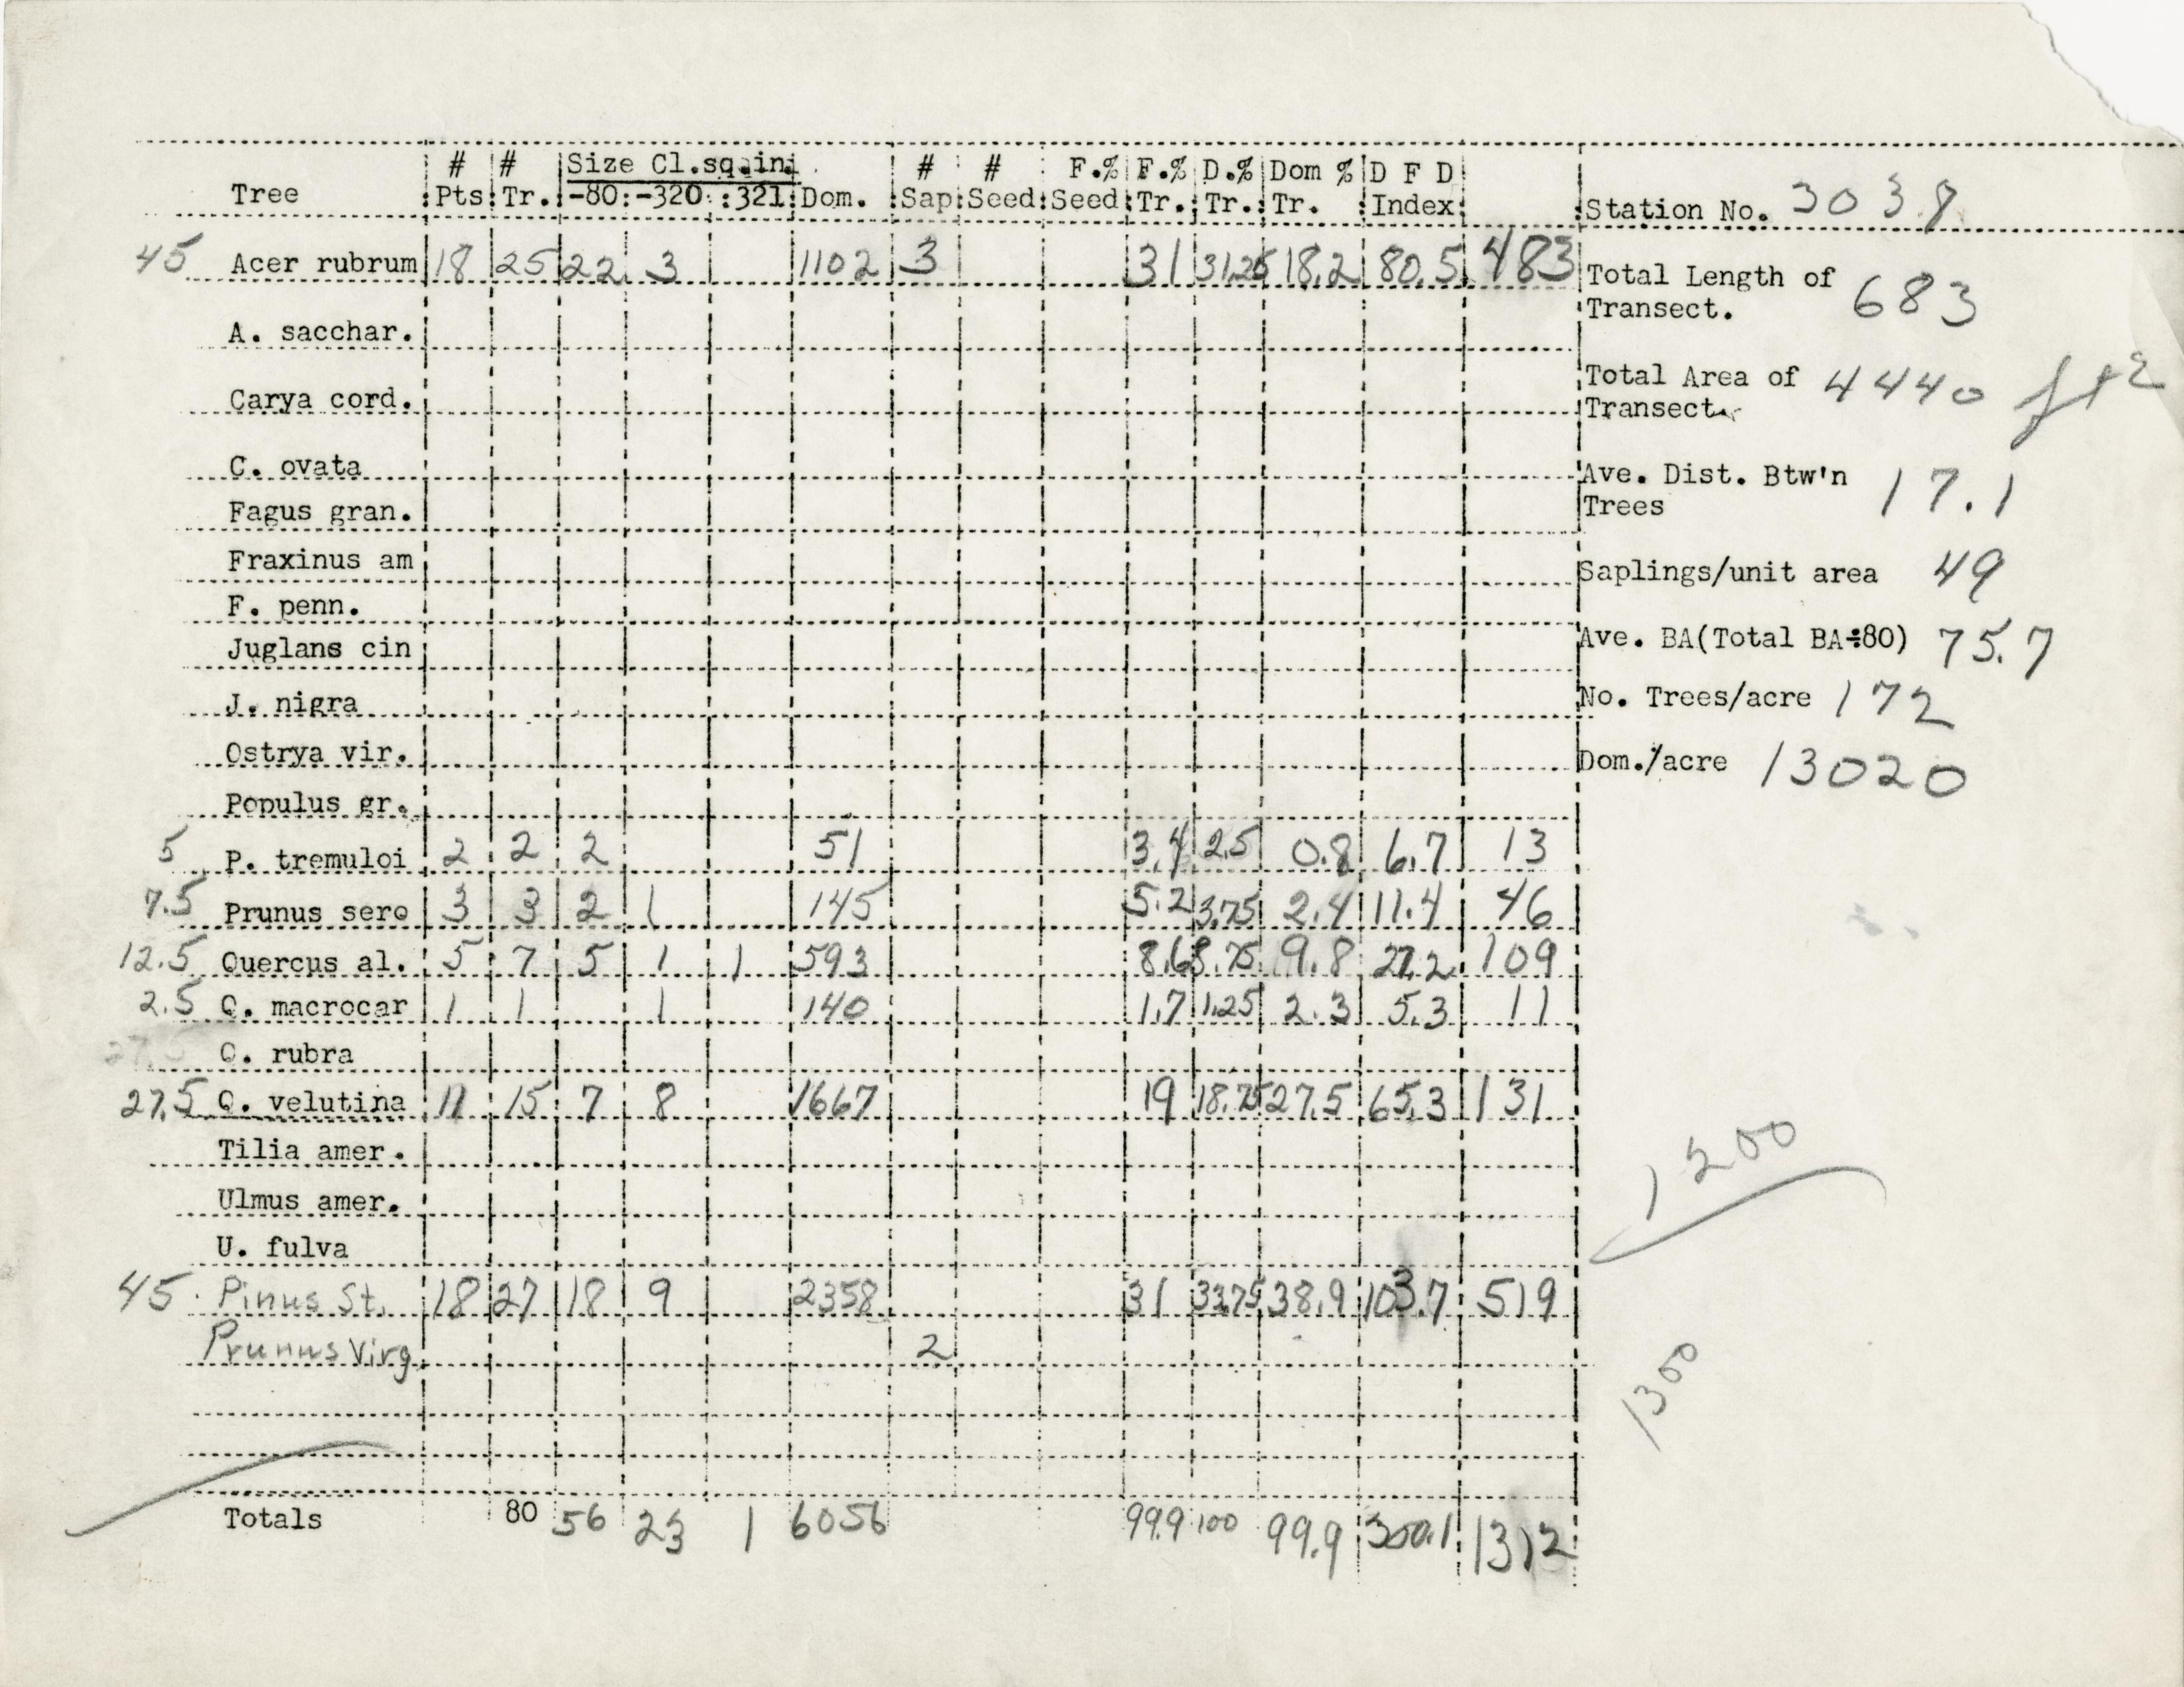 # # Size Cl.sq.in. # # F.% F.% D.% Dom % D F D
Tree Pts Tr. -80 -320 321 Dom. Sap Seed Seed Tr. Tr. Tr. Index
Station No. 3038
45 Acer rubrum 18 25 22 3 1102 3 31 31.25 18.2 80.5 483
Total Length of Transect. 683
A. sacchar.
Total Area of Transect. 4440 ft2
Carya cord.
C. ovata
Ave. Dist. Btw'n Trees 17.1
Fagus gran.
Fraxinus am
Saplings/unit area 49
F. penn.
Juglans cin
Ave. BA(Total BA÷80) 75.7
J. nigra
No. Trees/acre 172
Ostrya vir.
Dom./acre 13020
Populus gr.
5 P. tremuloi 2 2 2 51 3.4 2.5 0.8 6.7 13
7.5 Prunus sero 3 3 2 1 145 5.2 3.75 2.4 11.4 46
12.5 Quercus al. 5 7 5 1 1 593 8.6 8.75 9.8 27.2 109
2.5 Q. macrocar 1 1 1 140 1.7 1.25 2.3 5.3 11
27.5 Q. rubra
27.5 Q. velutina 11 15 7 8 1667 19 18.75 27.5 65.3 131
Tilia amer.
1200
Ulmus amer.
U. fulva
45 Pinus St. 18 27 18 9 2358 31 33.75 38.9 103.7 519
Prunus Virg. 2
1300
Totals 80 56 23 1 6056 99.9 100 99.9 300.1 1312